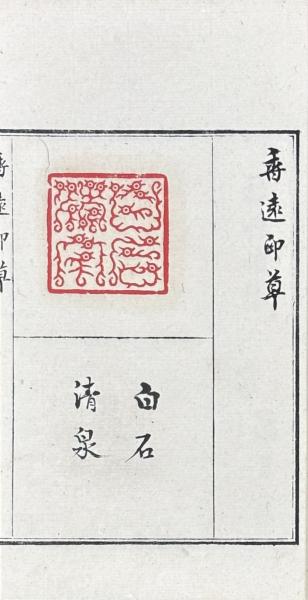 香遠印草
白石
清泉
香遠印草